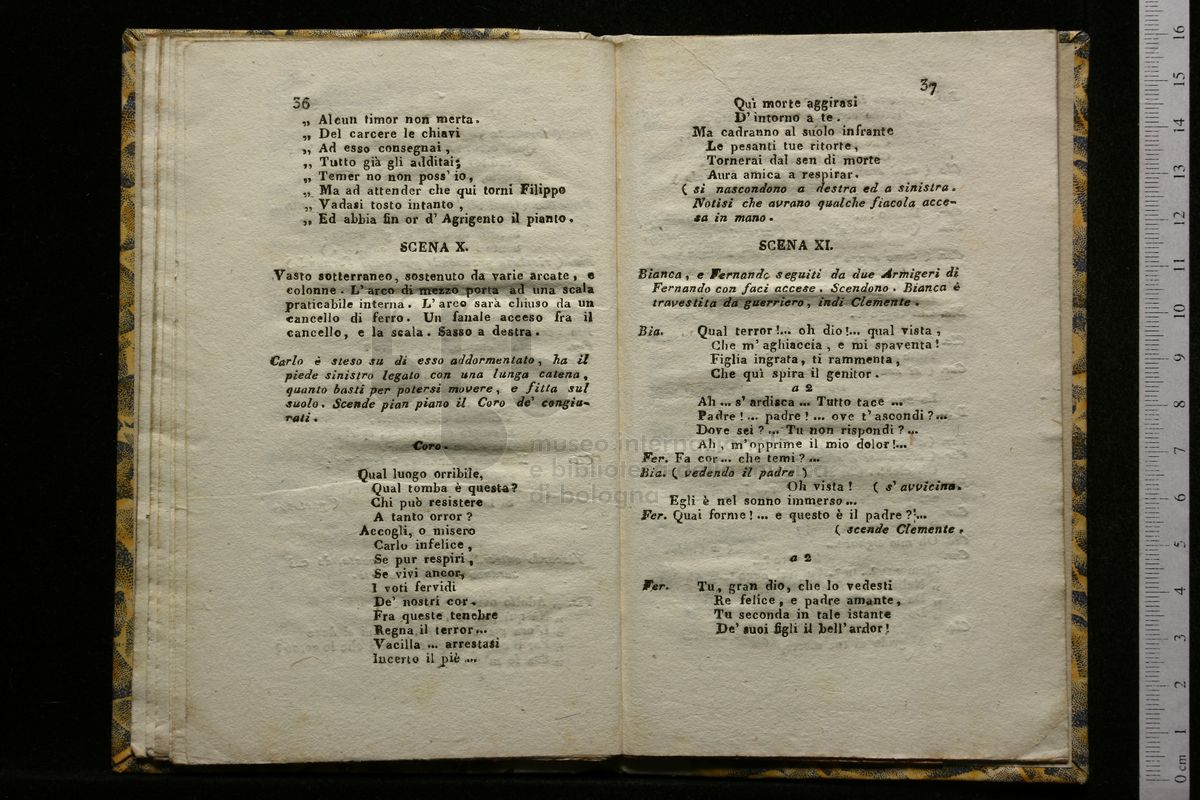 36
„ Alcun timor non merta.
„ Del carcere le chiavi
„ Ad esso consegnai,
„ Tutto già gli additai;
„ Temer no non poss' io,
„ Ma ad attender che qui torni Filippo
„ Vadasi tosto intanto,
„ Ed abbia fin or d' Agrigento il pianto.
SCENA X.
Vasto sotterraneo, sostenuto da varie arcate, e
colonne. L' arco di mezzo porta ad una scala
praticabile interna. L' arco sarà chiuso da un
cancello di ferro. Un fanale acceso fra il
cancello, e la scala. Sasso a destra.
Carlo è steso su di esso addormentato, ha il
piede sinistro legato con una lunga catena,
quanto basti per potersi movere, e fitta sul
suolo. Scende pian piano il Coro de' congiu-
rati.
Coro.
Qual luogo orribile,
Qual tomba è questa?
Chi può resistere
A tanto orror?
Accogli, o misero
Carlo infelice,
Se pur respiri,
Se vivi ancor,
I voti fervidi
De' nostri cor.
Fra queste tenebre
Regna il terror...
Vacilla ... arrestasi
Incerto il piè ...
37
Quì morte aggirasi
D' intorno a te.
Ma cadranno al suolo infrante
Le pesanti tue ritorte,
Tornerai dal sen di morte
Aura amica a respirar.
( si nascondono a destra ed a sinistra.
Notisi che avrano qualche fiacola acce-
sa in mano.
SCENA XI.
Bianca, e Fernando seguiti da due Armigeri di
Fernando con faci accese. Scendono. Bianca è
travestita da guerriero, indi Clemente.
Bia. Qual terror!... oh dio!... qual vista,
Che m' aghiaccia, e mi spaventa!
Figlia ingrata, ti rammenta,
Che quì spira il genitor.
a 2
Ah ... s' ardisca ... Tutto tace ...
Padre! ... padre! ... ove t' ascondi? ...
Dove sei? ... Tu non rispondi? ...
Ah, m'opprime il mio dolor!...
Fer. Fa cor ... che temi? ...
Bia. ( vedendo il padre )
Oh vista! ( s' avvicina.
Egli è nel sonno immerso ...
Fer. Quai forme! ... e questo è il padre?!...
( scende Clemente.
a 2
Fer. Tu, gran dio, che lo vedesti
Re felice, e padre amante,
Tu seconda in tale istante
De' suoi figli il bell' ardor!
museo internazionale
e biblioteca della musica
di bologna
0 cm 1 2 3 4 5 6 7 8 9 10 11 12 13 14 15 16